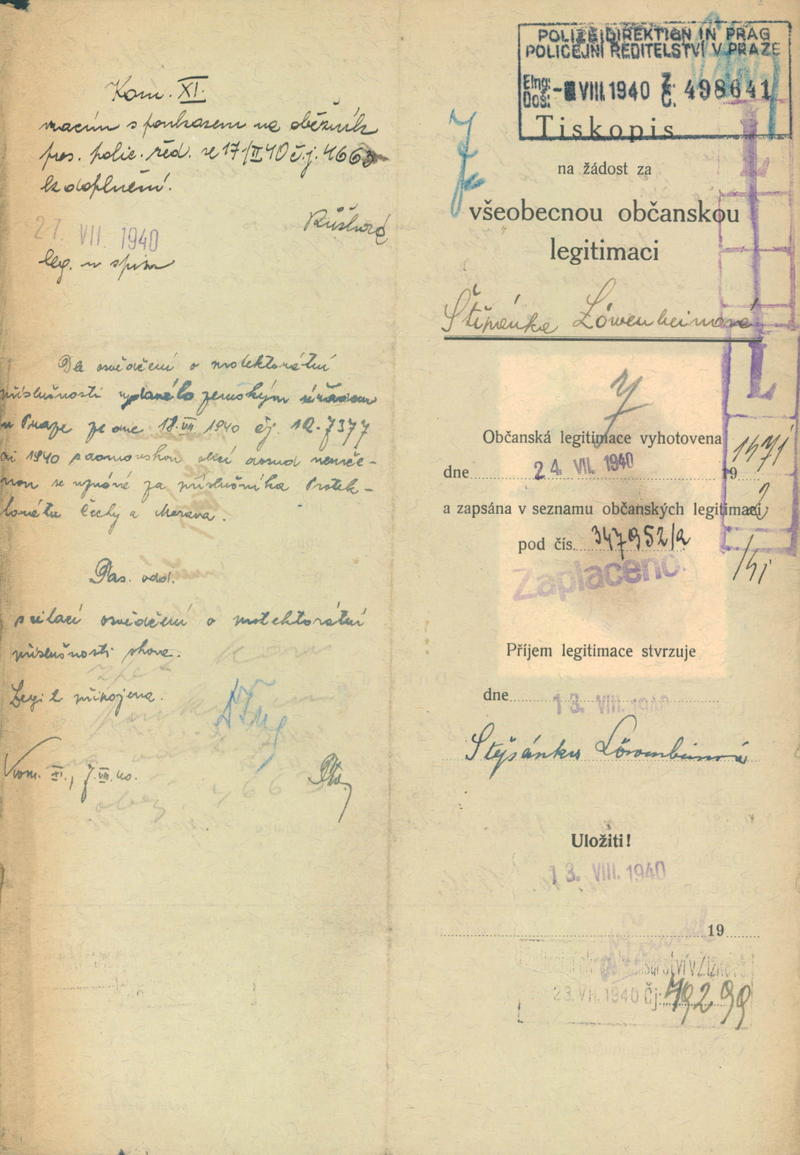 Kom. XI.
vracím s poukazem na oběžník
pres. polic. řed. ze 17/II 40 č.j. 466
k doplnění.
27. VII. 1940
leg. v spisu
Dle osvědčení o protektorátní
příslušnosti vydaného zemským úřadem
v Praze ze dne 18. VII 1940 čj. 12-7377
ai 1940
se uznává za příslušníka Protek-
torátu Čechy a Morava.
Pas. odd.
s relací osvědčení o protektorátní
příslušnosti shora.
Legi 2 připojena.
Kom. XI.,
POLIZEIDIREKTION IN PRAG
POLICEJNÍ ŘEDITELSTVÍ V PRAZE
Eing:
Doš: - VIII 1940 Z. Č. 498641
Tiskopis
na žádost za
všeobecnou občanskou
legitimaci
Štěpánka Löwenheimová
L
J
Občanská legitimace vyhotovena
dne 24. VII. 1940 19
a zapsána v seznamu občanských legitimací
pod čís. 347952/2
Zaplaceno.
Příjem legitimace stvrzuje
dne 13. VIII. 1940
Štěpánka Löwenheimová
Uložiti!
13. VIII. 1940
19
23. VII. 1940 Čj: 79299